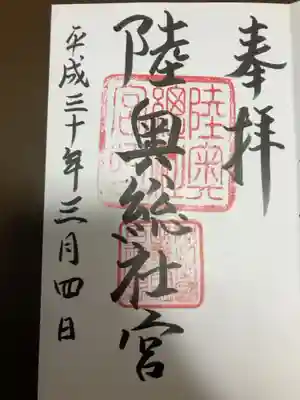 奉拝
陸奥総社宮
平成三十年三月四日